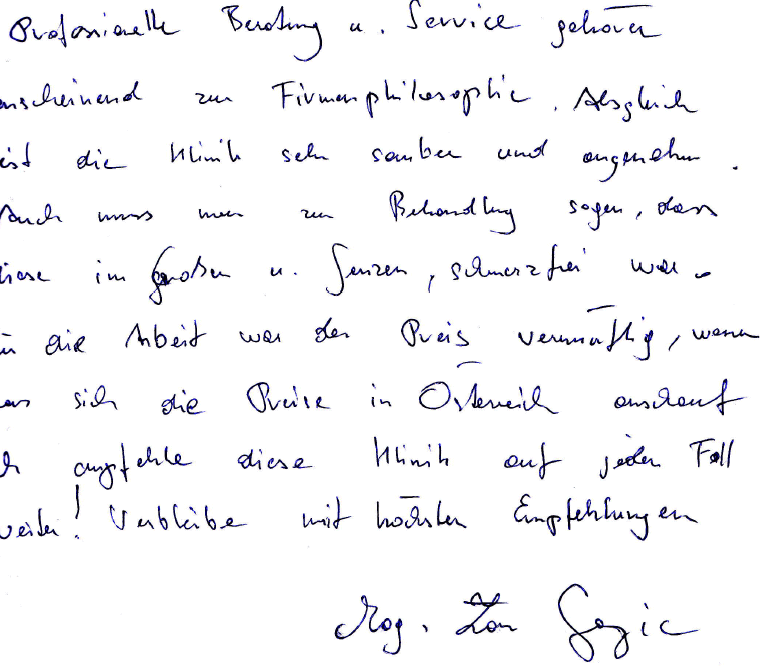 Professionelle Beratung u. Service gehören
anscheinend zur Firmenphilosophie. Abgleich
ist die Klinik sehr sauber und angenehm.
Auch muss man zur Behandlung sagen, dass
diese im Großen u. Ganzen, schmerzfrei war.
die Arbeit war der Preis vernünftig, wenn
sich die Preise in Österreich anschaut
empfehle diese Klinik auf jeden Fall
weiter! Verbleibe mit höchsten Empfehlungen
Mag.